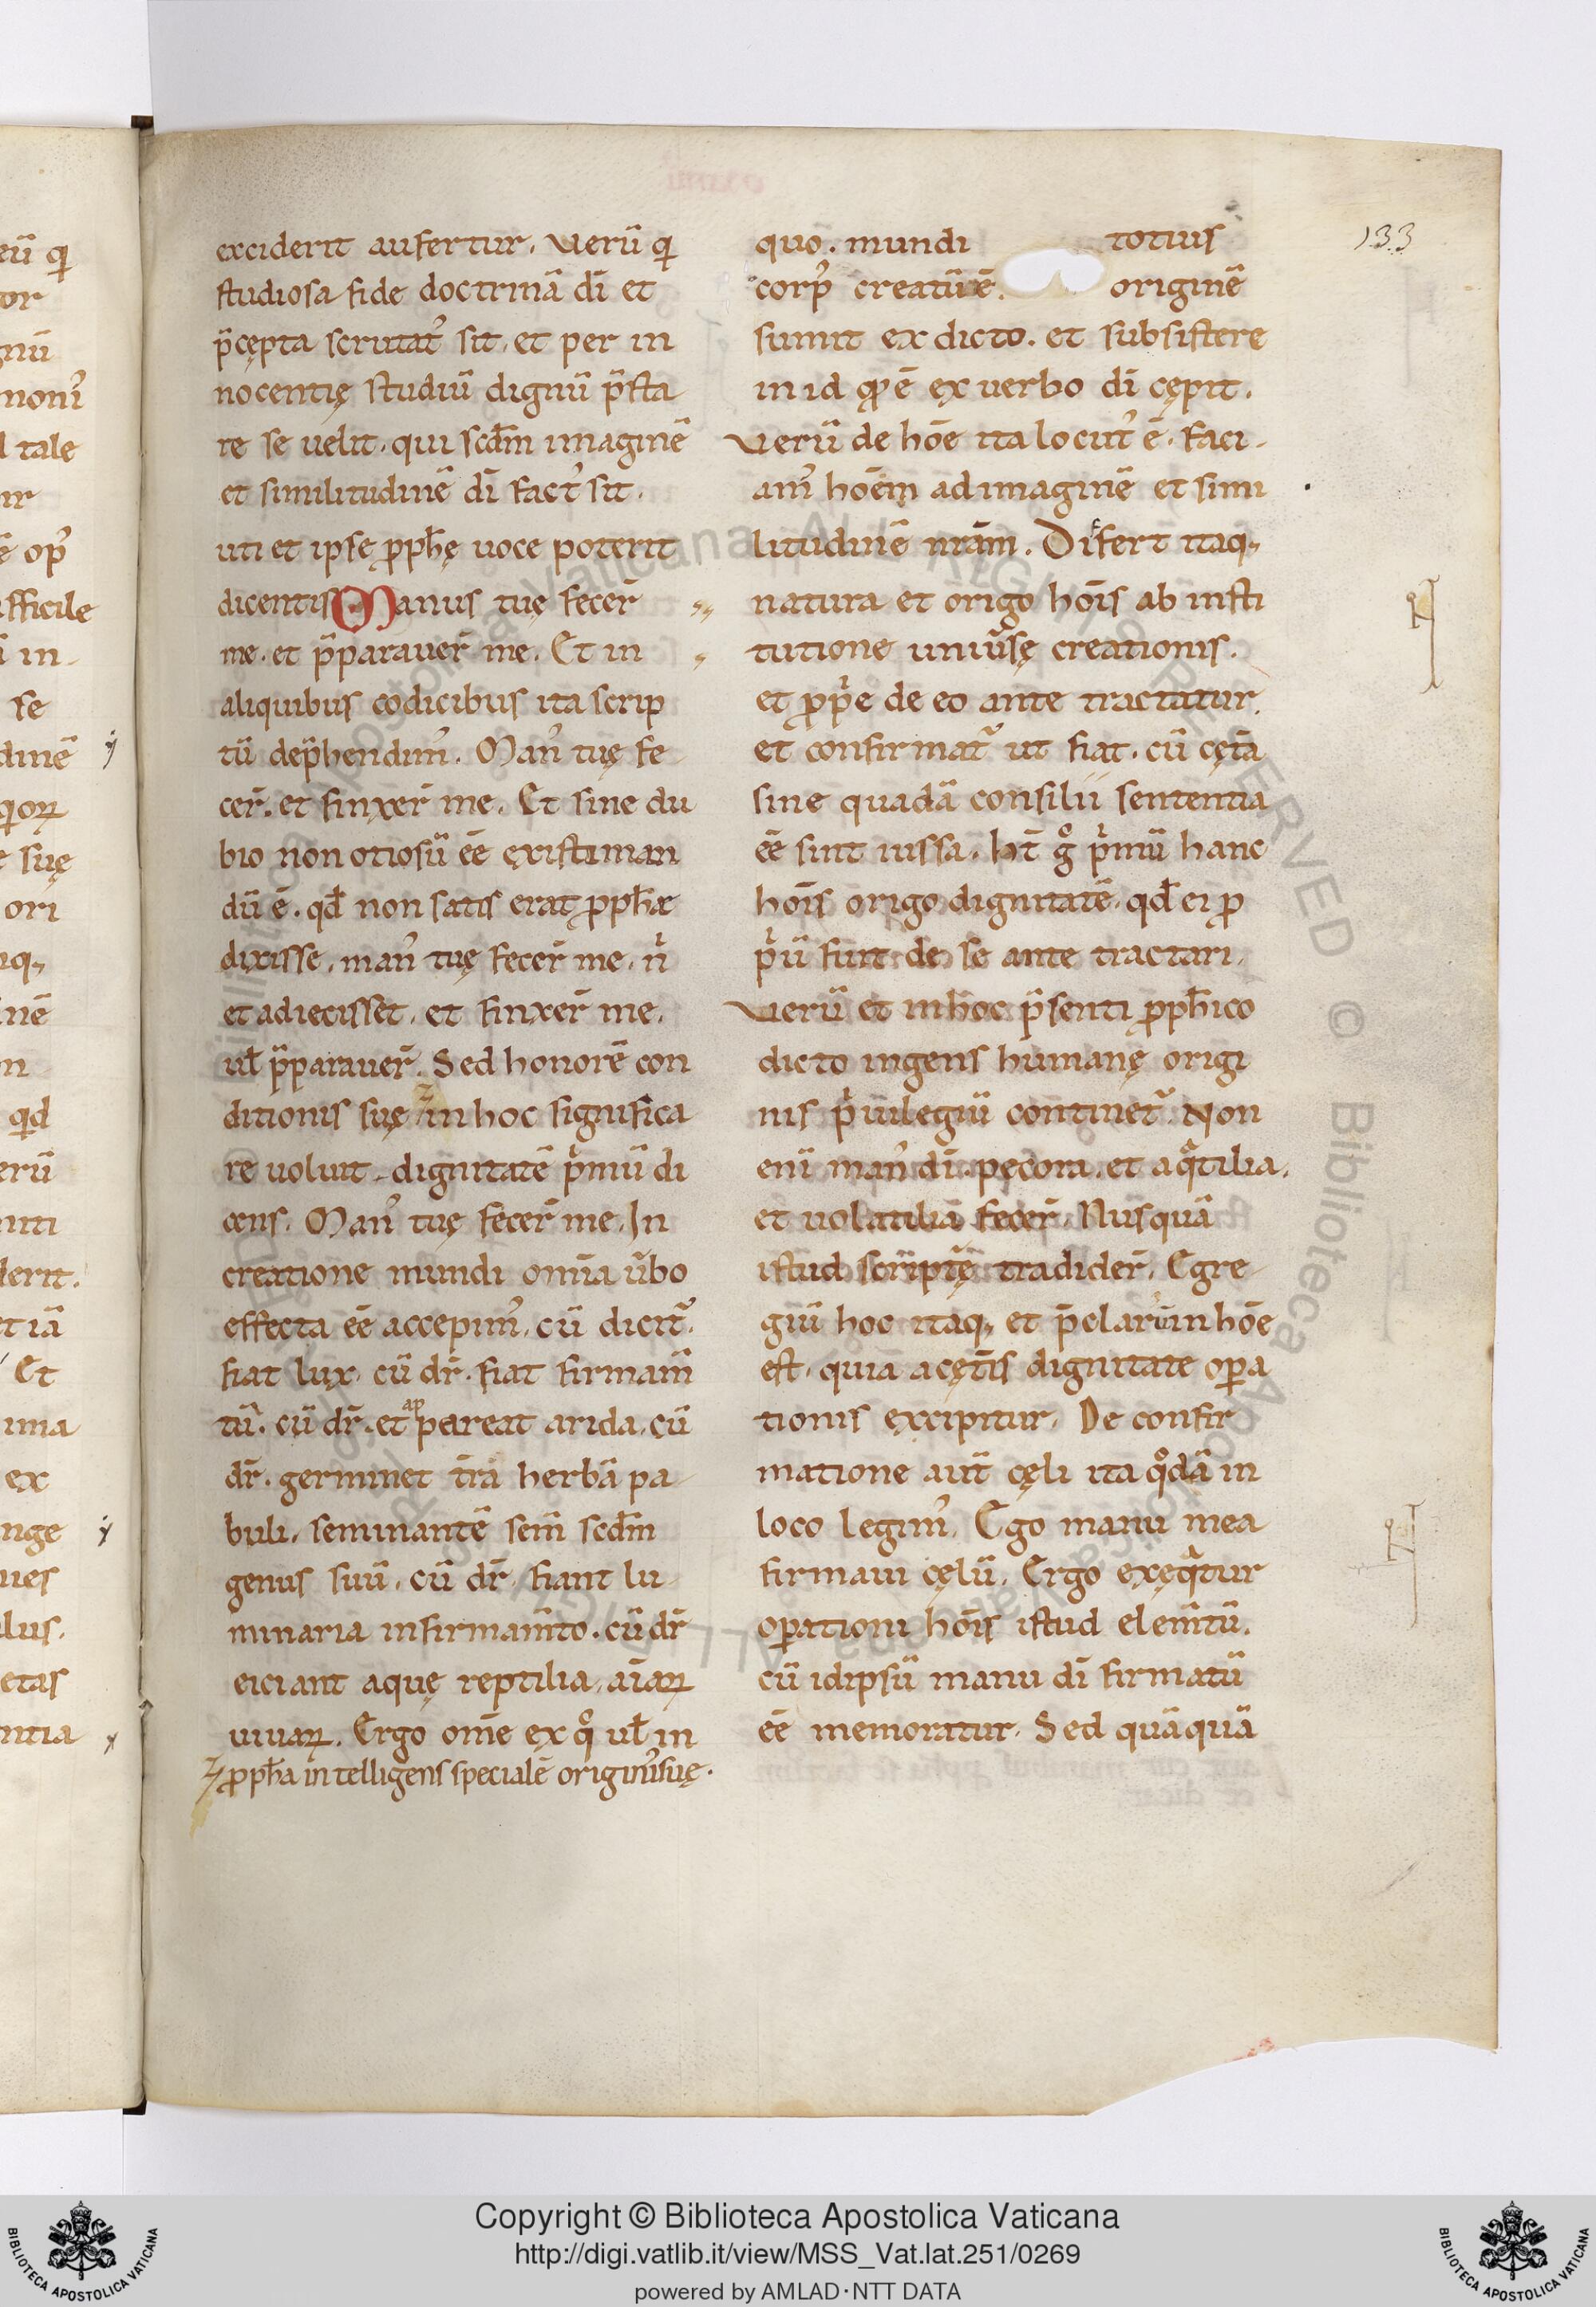 exciderit aufertur. Uerũ q̃
studiosa fide doctrinã dĩ et
p̃cepta scrutat᾽ sit. et per in
nocentię studiũ dignũ p̃sta
re se uelit. qui scd̃m imaginẽ
et similitudinẽ dĩ fact᾽ sit.
uti et ipse ꝓph̃ę uoce poterit
dicentis Manus tuę fecer̃
me. et p̃parauer̃ me. Et in
aliquibus codicibus ita scrip
tũ dep̃hendim᾽. Man᾽ tuę fe
cer̃. et finxer̃ me. Et sine du
bio non otiosũ ẽẽ existiman
dũ ẽ. qd̃ non satis erat ꝓph̃ae
dixisse. man᾽ tuę fecer̃ me. nͥ
et adiecisset. et finxer̃ me.
ul̃ p̃parauer̃. Sed honorẽ con
ditionis suę in hoc significa
re uoluit. dignitatẽ pͥmũ di
cens. Man᾽ tuę fecer̃ me. In
creatione mundi om̃ia ũbo
effecta ẽẽ accepim᾽. cũ dicit᾽.
fiat lux. cũ dr̃. fiat firmam̃
tũ. cũ dr̃. et appareat arida. cũ
dr̃. germinet t̃ra herbã pa
buli. seminantẽ sem̃ scd̃m
genus suũ. cũ dr̃. fiant lu
minaria in firmam̃to. cũ dr̃
eiciant aquę reptilia. aĩaꝝ
uiuaꝝ. Ergo om̃e ex qͦ ul̃ in
ꝓph̃a intelligens specialẽ origin᾽ suę.
quo. mundi totius
corp᾽ creatũẽ. originẽ
sumit ex dicto. et subsistere
in id qđ ẽ ex uerbo dĩ cępit.
Uerũ de hõe ita locut᾽ ẽ. faci
am᾽ hõem ad imaginẽ et simi
litudinẽ nr̃am. Difert itaq;
natura et origo hõis ab insti
tutione uniũsę creationis.
et ꝓpͥe de eo ante tractatur.
et confirmat᾽ ut fiat. cũ cęt̃a
sine quadã consilii sententia
ẽẽ sint iussa. ht̃ gͦ pͥmũ hanc
hõis origo dignitatẽ. qd̃ ei ꝓ
pͥũ fuit de se ante tractari.
Uerũ et in hoc p̃senti ꝓph̃ico
dicto ingens humanę origi
nis pͥuilegiũ continet᾽. Non
enĩ man᾽ dĩ. pecora. et aqͣtilia.
et uolatilia fecer̃. Nusquã
istud scriptũę tradider̃. Egre
giũ hoc itaq; et p̃clarũ in hõe
est. quia a cęt̃is dignitate oꝑa
tionis excipitur. De confir
matione aut̃ cęli ita qͦdã in
loco legim᾽. Ego manu mea
firmaui cęlũ. Ergo exęqͣtur
oꝑationi hõis istud elem̃tũ.
cũ idipsũ manu dĩ firmatũ
ẽẽ memoratur. Sed quãquã
133